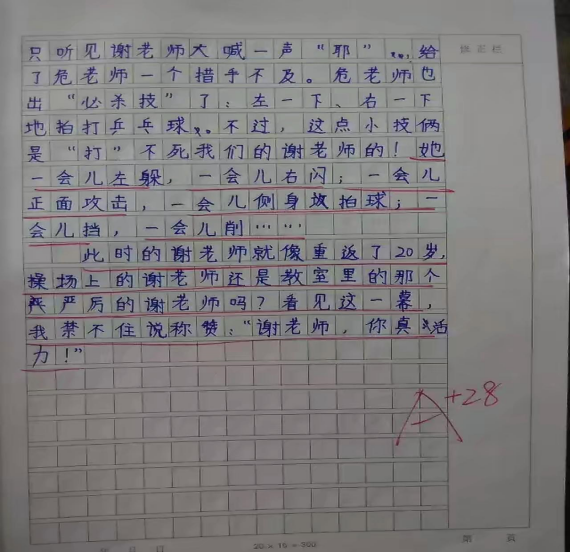 只听见谢老师大喊一声“耶”……给
了危老师一个措手不及。危老师也
出“必杀技”了：左一下、右一下
地拍打乒乓球。不过，这点小技俩
是“打”不死我们的谢老师的！她
一会儿左躲，一会儿右闪；一会儿
正面攻击，一会儿侧身拍球；一
会儿挡，一会儿削……
此时的谢老师就像重返了20岁，
操场上的谢老师还是教室里的那个
严厉的谢老师吗？看见这一幕，
我禁不住说称赞：“谢老师，你真活
力！”
A+28
20×15=300